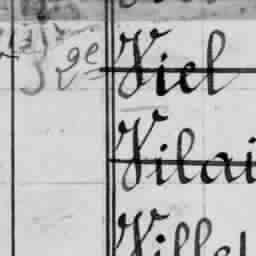 2e Viel
Vilai
Villet